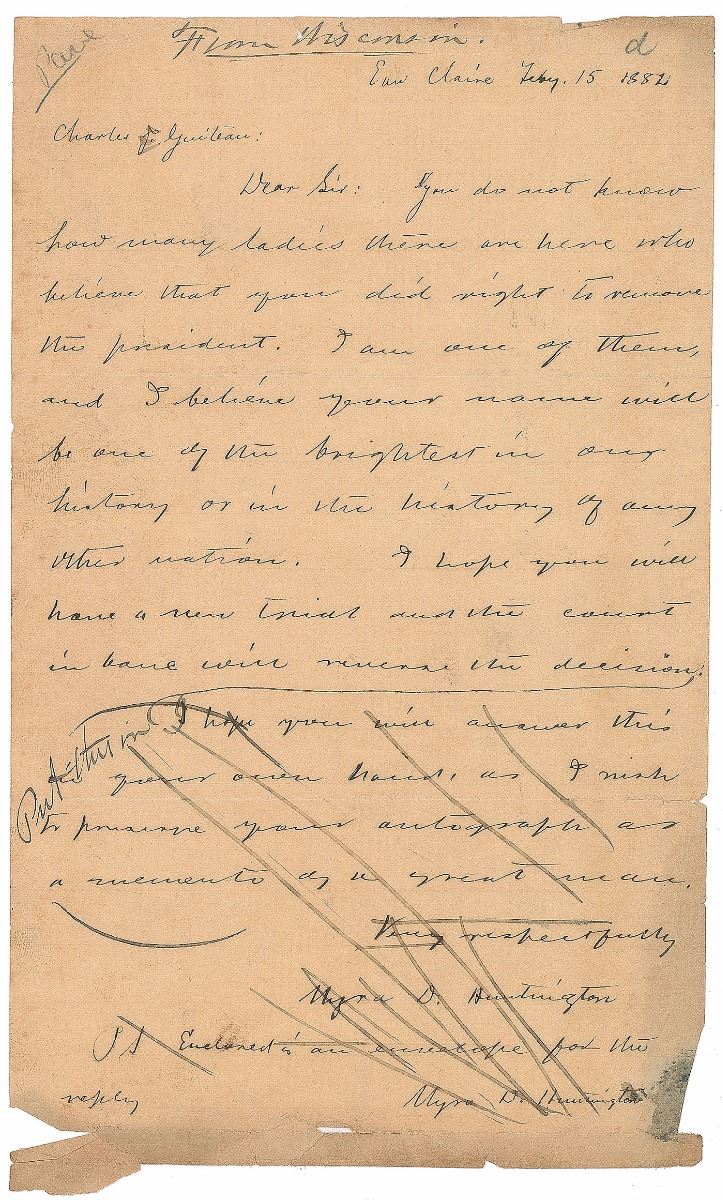 From Wisconsin.
d
Eau Claire Feby. 15 1882
Charles J. Guiteau:
Dear Sir: You do not know
how many ladies there are here who
believe that you did right to remove
the president. I am one of them,
and I believe your name will
be one of the brightest in our
history or in the history of any
other nation. I hope you will
have a new trial and the court
in banc will reverse the decision.
Put this in
I hope you will answer this
in your own hand, as I wish
to preserve your autograph as
a memento of a great man.
Very respectfully
Myra D. Huntington
PS Enclosed is an envelope for the
reply Myra D. Huntington